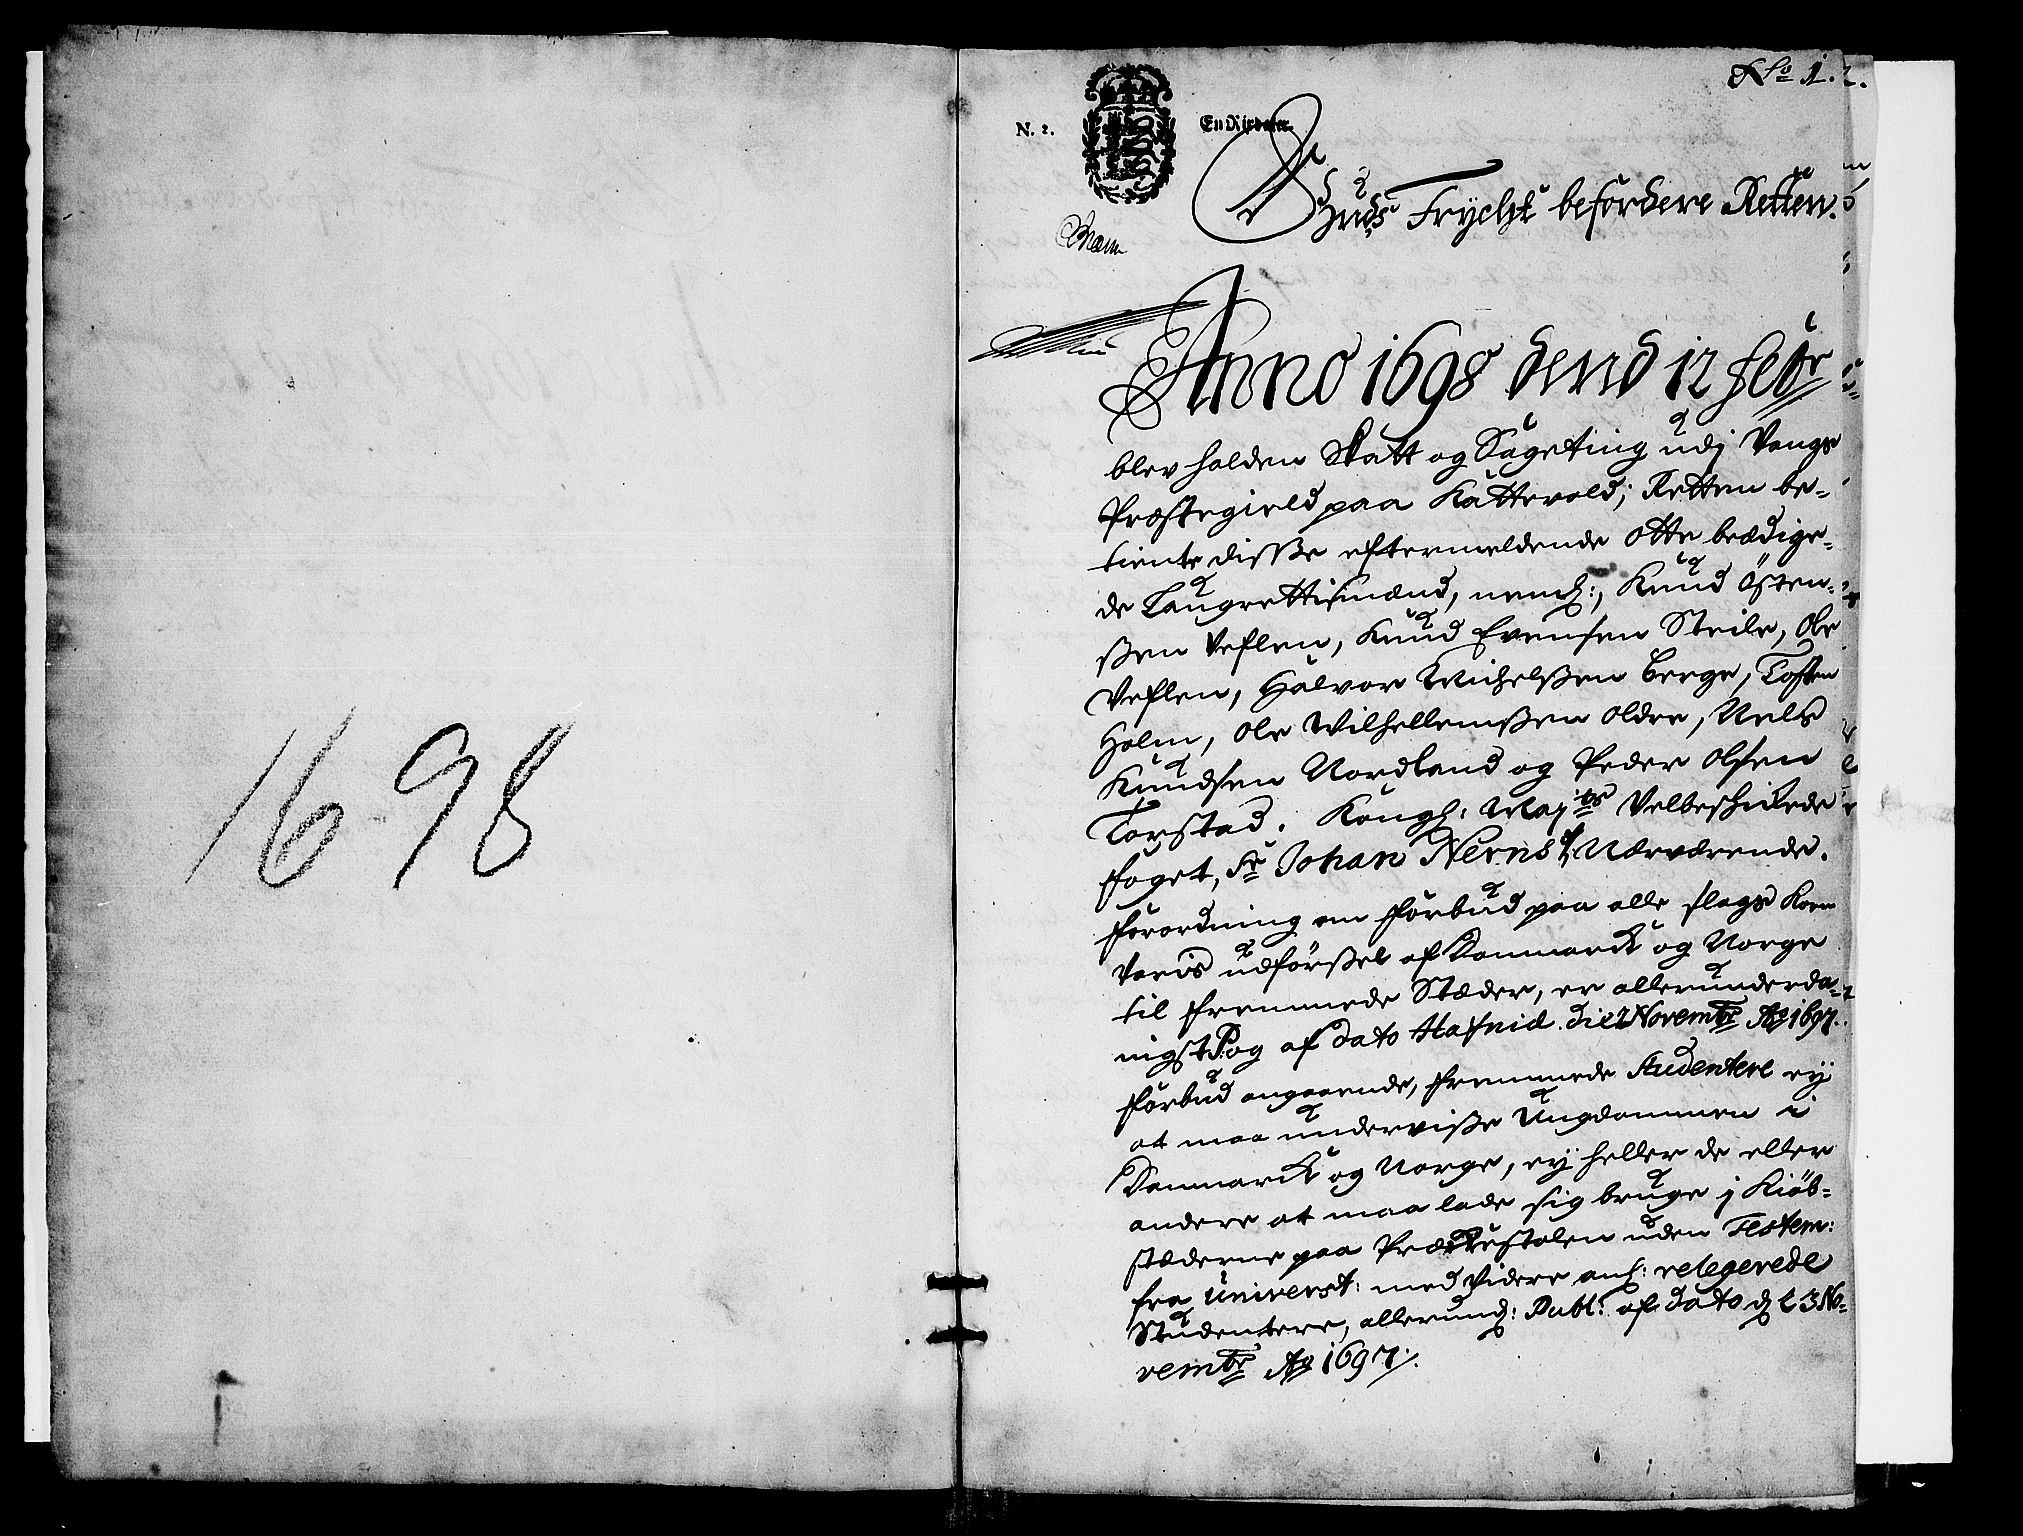 1698
No 1.
N. 2.
En Rixdaler.
Guds Frycht befordere Retten.
Anno 1698 dend 12 febr
blev holden Skatt og Sageting udj Vangs
Præstegield paa Kattevold; Retten be-
tiente disse eftermeldende otte beædige-
de Laugrettismænd, neml:, Knud Östen-
ßen Veflen, Knud Evensen Steile, Ole
Veflen, Halvor Michelßen Berge, Tosten
Holm, Ole Wilhellemßen Oldre, Niels
Knudsen Nordland og Peder Olsen
Torstad. Kongl: Maj:ts Velbeskickede
foget, Sr Johan Nerns, Nærværende.
Forordning om forbud paa alle slags Korn
Varis udförßel af Danmarck og Norge
til fremmede Stæder, er allerunderda-
nigst P: og af dato Hafniæ die 2 Novembr Ao 1697.
Forbud angaaende, fremmede Studentere ey
at maa underviße Ungdommen i
Danmarck og Norge, ey heller de eller
andere at maa lade sig bruge j Kiöb-
stæderne paa Prædickestolen uden Testem:
fra Universt: med Videre anl: relegerede
Studentere, allerund: Publ: af dato d 23 No-
vembr Ao 1697.